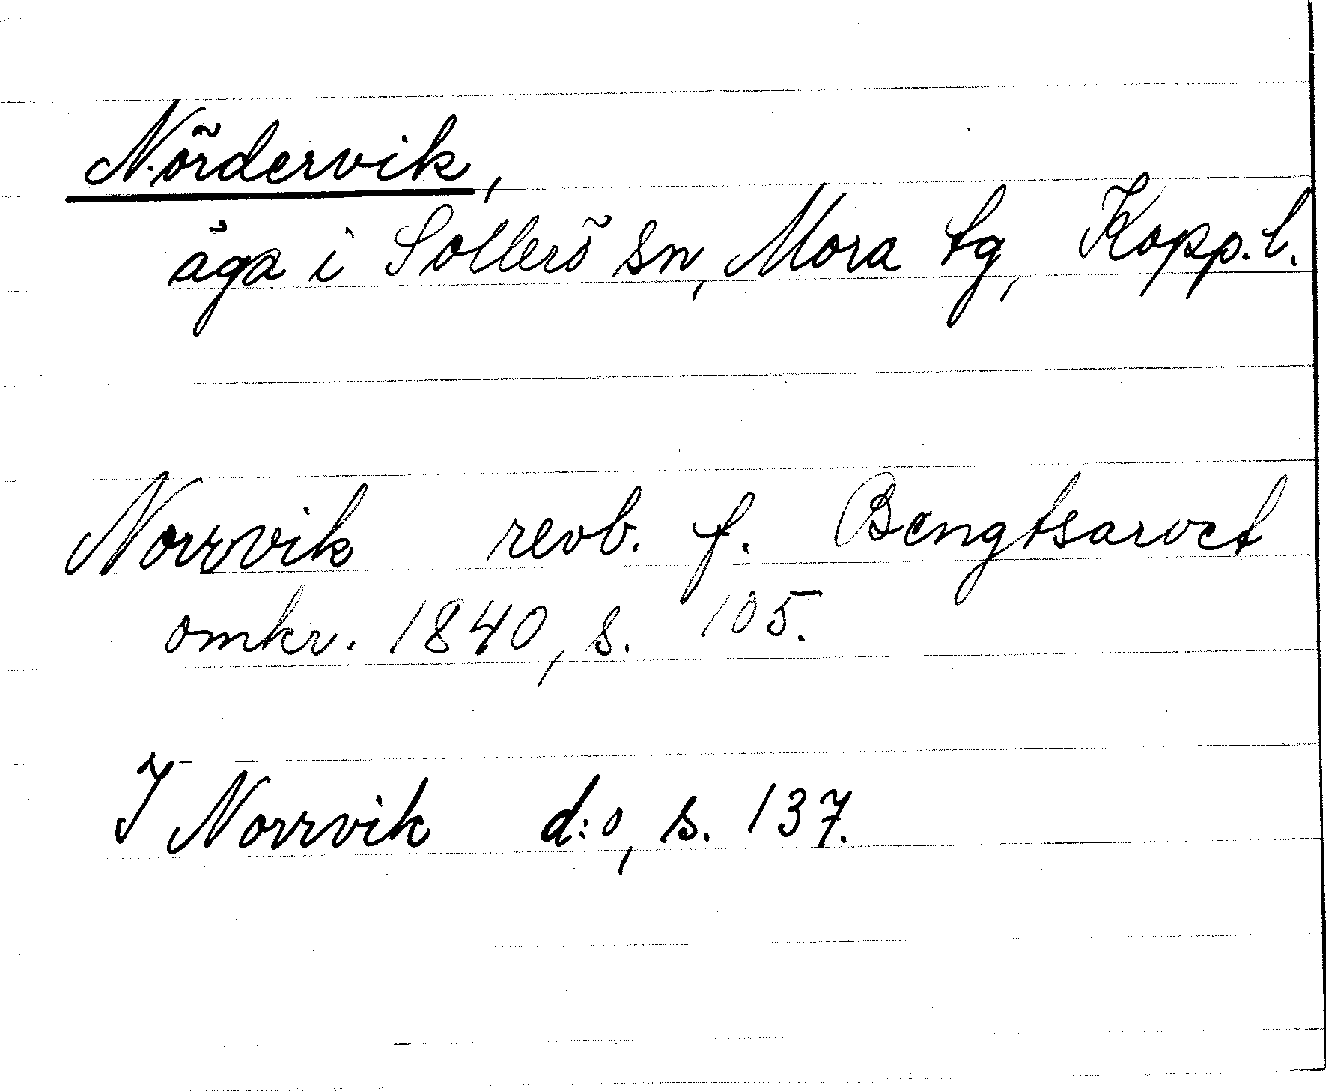 Nördervik,
äga i Sollerö sn, Mora tg, Kopp.l.
Norrvik revb. f. Bengtsarvet
omkr. 1840, s. 105.
I Norrvik d:o, s. 137.